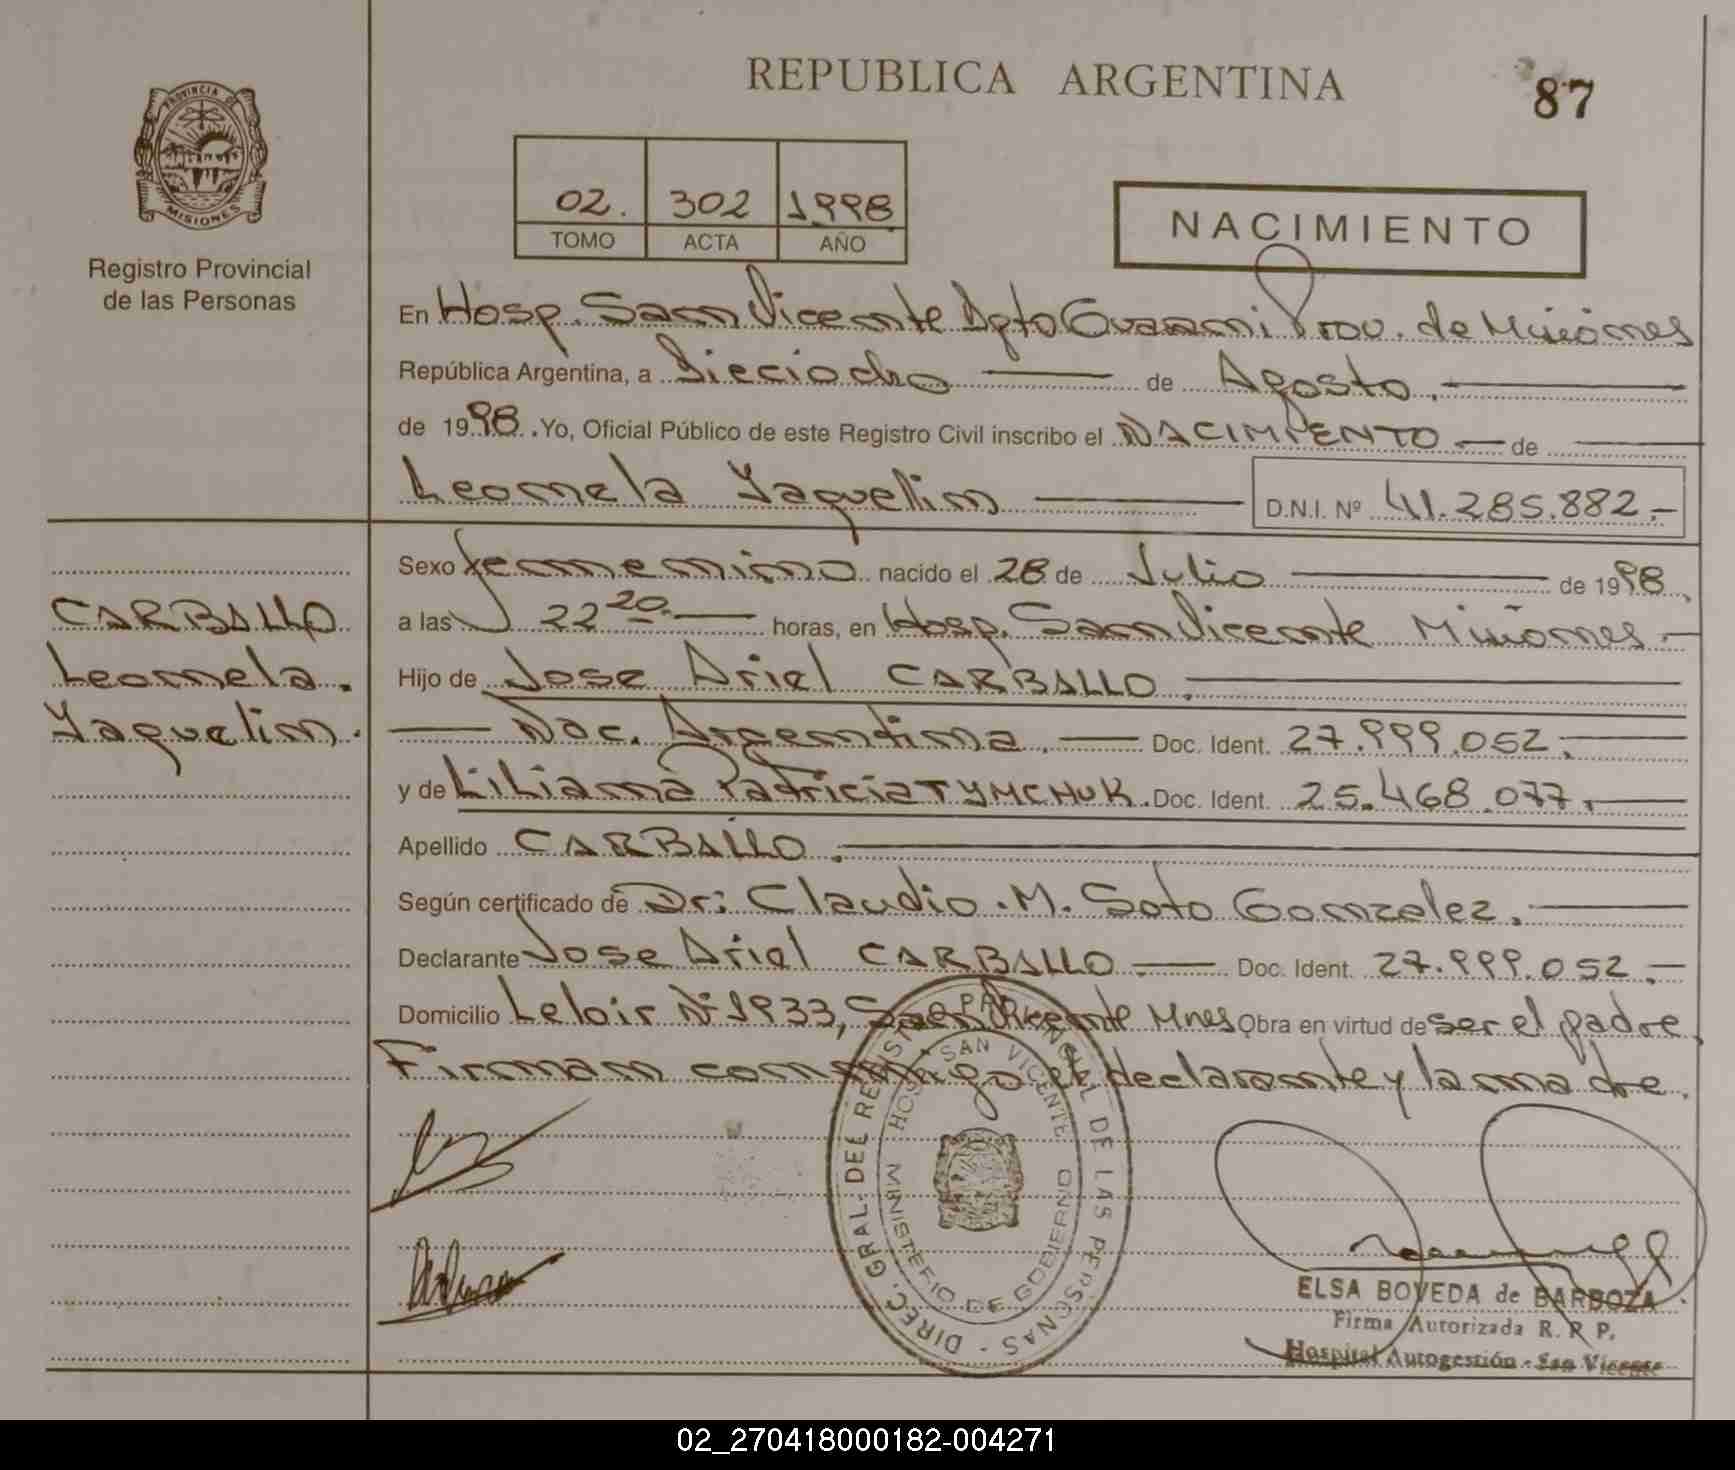 REPUBLICA ARGENTINA
87
PROVINCIA DE
MISIONES
Registro Provincial
de las Personas
02. 302 1998
TOMO ACTA AÑO
NACIMIENTO
En Hosp. San Vicente Dpto Guarani Prov. de Misiones
República Argentina, a Dieciocho de Agosto.
de 1998. Yo, Oficial Público de este Registro Civil inscribo el NACIMIENTO de
Leonela Yaquelin D.N.I. Nº 41.285.882.-
CARBALLO
Leonela.
Yaquelin.
Sexo femenino nacido el 28 de Julio de 1998.
a las 22 20 horas, en Hosp. San Vicente Misiones.-
Hijo de Jose Ariel CARBALLO.
Nac. Argentina. Doc. Ident. 27.999.052.
y de Liliana Patricia TYMCHUK. Doc. Ident. 25.468.077.
Apellido CARBALLO.
Según certificado de Dr: Claudio. M. Soto Gonzalez.
Declarante Jose Ariel CARBALLO Doc. Ident. 27.999.052.-
Domicilio Leloir Nº 1933, San Vicente Mnes Obra en virtud de ser el padre.
Firman conmigo el declarante y la madre.
DIREC. GRAL. DEL REGIST. PROVINCIAL DE LAS PERSONAS -
HOSP. SAN VICENTE
MINISTERIO DE GOBIERNO
ELSA BOVEDA de BARBOZA
Firma Autorizada R. R. P.
Hospital Autogestión - San Vicente
02_270418000182-004271